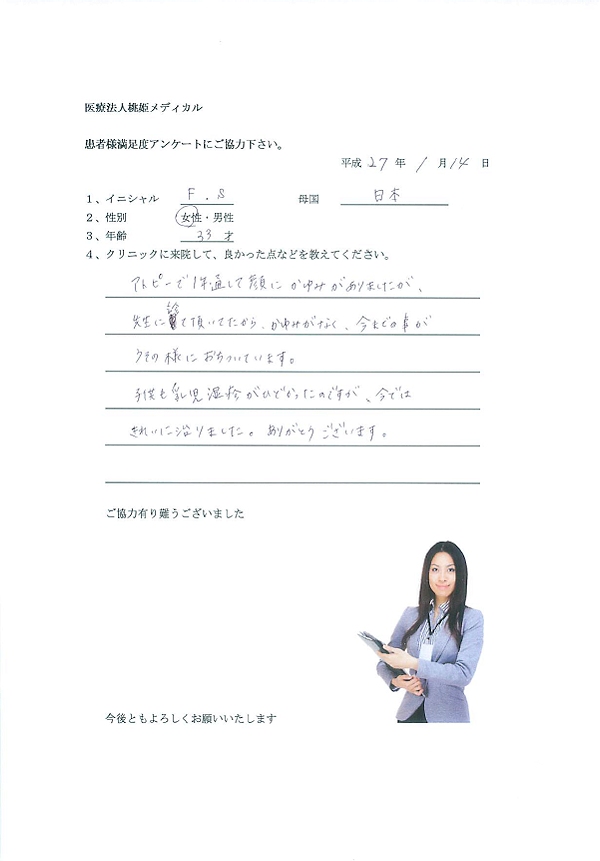 医療法人桃姫メディカル
患者様満足度アンケートにご協力下さい。
平成 27 年 1 月 14 日
1、イニシャル F.S 母国 日本
2、性別 女性・男性
3、年齢 33才
4、クリニックに来院して、良かった点などを教えてください。
アトピーで1年通して顔にかゆみがありましたが、
先生に診て頂いてから、かゆみがなく、今までの事が
うその様におちついています。
子供も乳児湿疹がひどかったのですが、今では
きれいに治りました。ありがとうございます。
ご協力有り難うございました
今後ともよろしくお願いいたします